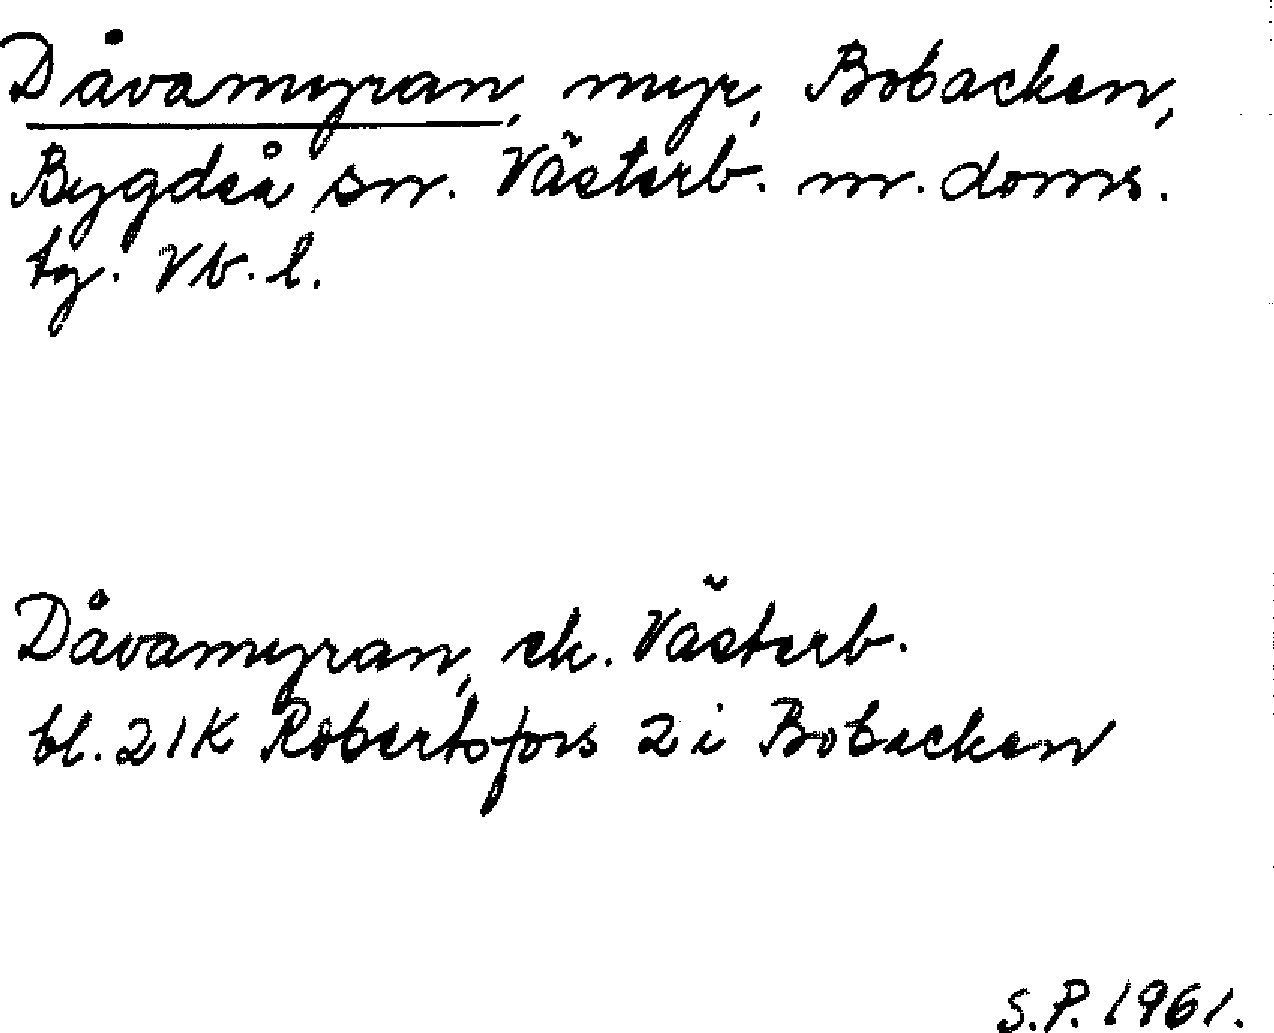 Dåvamyran, myr, Bobacken,
Bygdeå sn. Västerb. n. doms.
tg. Vb. l.
Dåvamyran, ek. Västerb.
bl. 21K Robertsfors 2 i Bobacken
S.P. 1961.